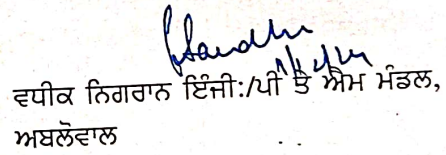 ਵਧੀਕ ਨਿਗਰਾਨ ਇੰਜੀ:/ਪੀ ਤੇ ਐਮ ਮੰਡਲ,
ਅਬਲੋਵਾਲ